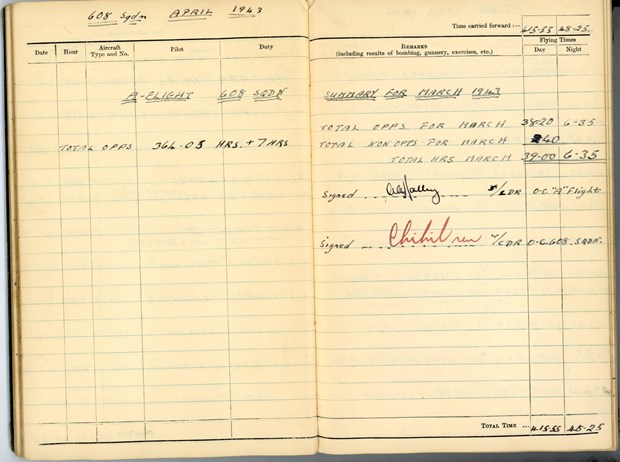 608 Sqdn APRIL 1943
Date Hour Aircraft Type and No. Pilot Duty
A-FLIGHT 608 SQDN
TOTAL OPPS 364-05 HRS. + 7 HRS
Time carried forward :— 415-55 48-25
REMARKS
(including results of bombing, gunnery, exercises, etc.)
Flying Times
Day Night
SUMMARY FOR MARCH 1943
TOTAL OPPS FOR MARCH 38-20 6-35
TOTAL NON OPPS FOR MARCH 40
TOTAL HRS MARCH 39-00 6-35
Signed /LDR O.C "A" Flight
Signed /CDR O.C. 608 SQDN.
TOTAL TIME ... 415-55 48-25